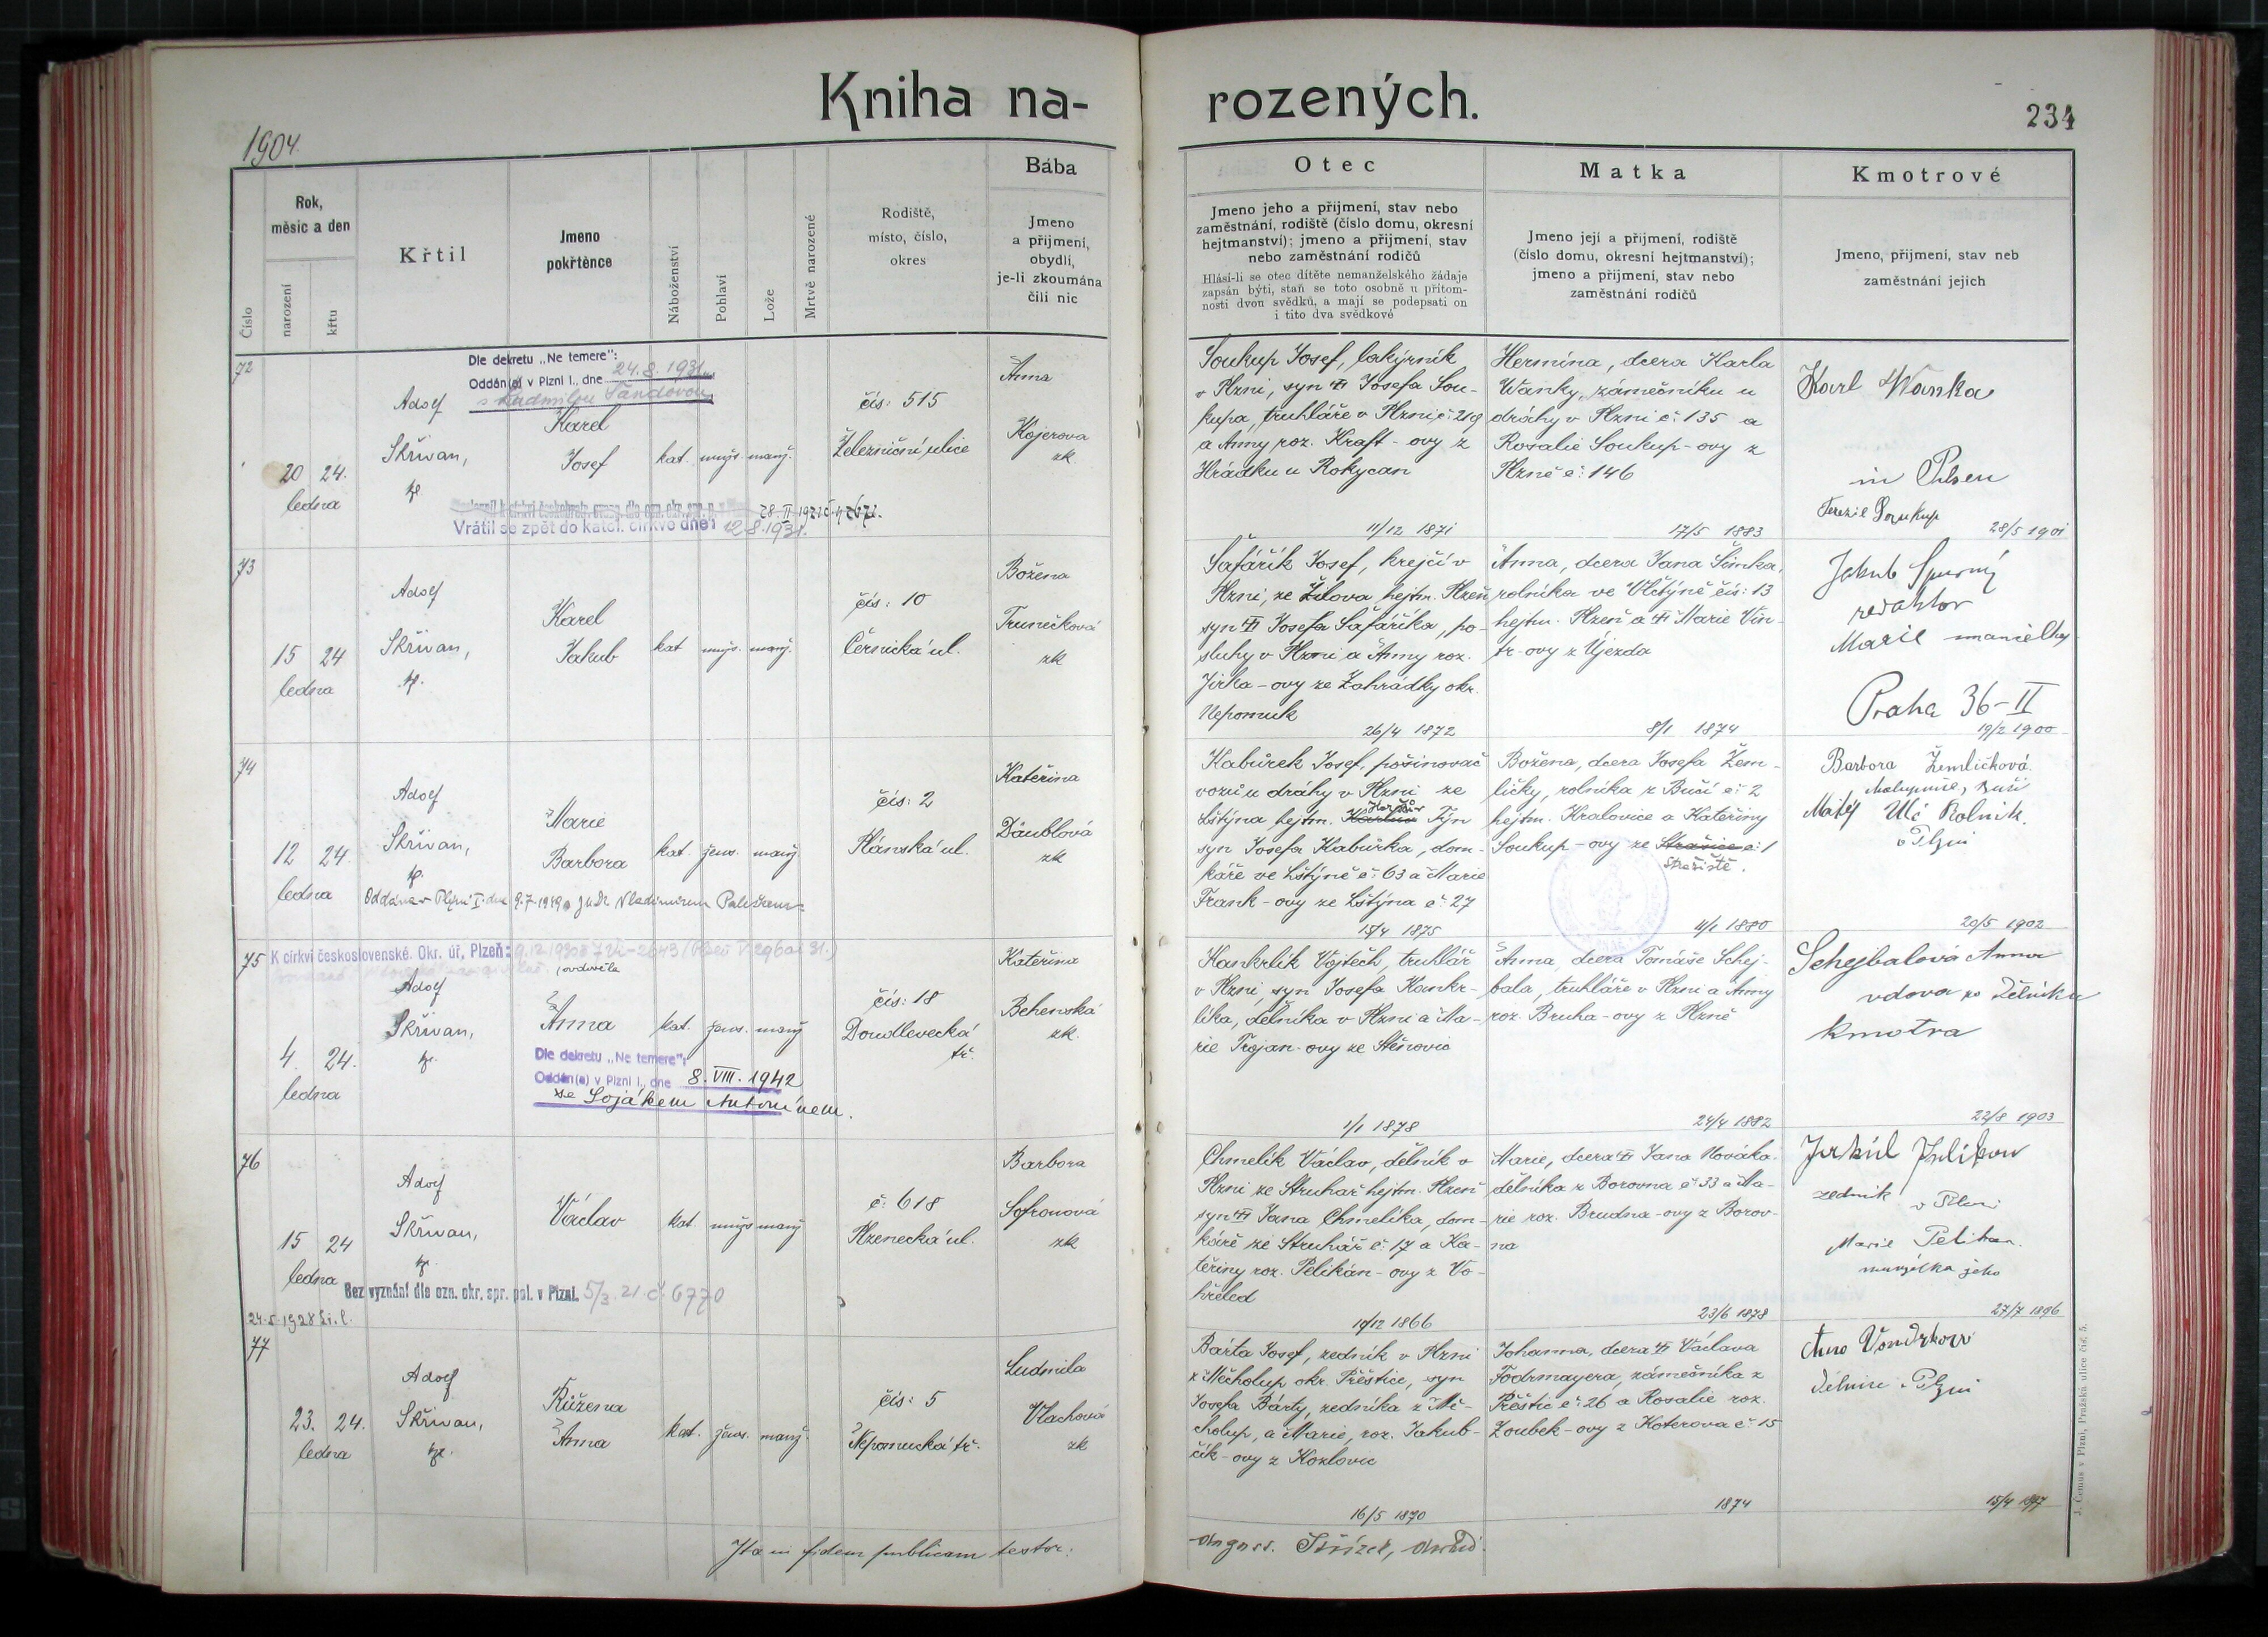 Kniha na-
rozených.
234
1904
Číslo
Rok,
měsíc a den
narození
křtu
Křtil
Jmeno
pokřtěnce
Náboženství
Pohlaví
Lože
Mrtvě narozené
Rodiště,
místo, číslo,
okres
Bába
Jmeno
a přijmení,
obydlí,
je-li zkoumána
čili nic
Otec
Jmeno jeho a přijmení, stav nebo
zaměstnání, rodiště (číslo domu, okresní
hejtmanství); jmeno a přijmení, stav
nebo zaměstnání rodičů
Hlásí-li se otec dítěte nemanželského žádaje
zapsán býti, staň se toto osobně u přítom-
nosti dvou svědků, a mají se podepsati on
i tito dva svědkové
Matka
Jmeno její a přijmení, rodiště
(číslo domu, okresní hejtmanství);
jmeno a přijmení, stav nebo
zaměstnání rodičů
Kmotrové
Jmeno, přijmení, stav neb
zaměstnání jejich
72
Dle dekretu „Ne temere":
Oddán(a) v Plzni I., dne 24.8.1931
s Ludmilou Šandovou
20 24.
ledna
Adolf
Skřivan,
Karel
Josef
kat. mužs. manž.
čís: 515
Železniční ulice
Anna
Kojerova
zk
28.II.1921
Vrátil se zpět do katol. církve dne: 12.8.1931.
Soukup Josef, lakýrník
v Plzni, syn Josefa Sou-
kupa, truhláře v Plzni č: 219
a Anny roz. Kraft-ovy z
Hrádku u Rokycan
11/12 1871
Hermina, dcera Karla
Wanky, zámečníku u
dráhy v Plzni č: 135 a
Rosalie Soukup-ovy z
Plzně č: 146
17/5 1883
Karl Wanka
in Pilsen
Terezie Soukup
28/5 1901
73
15 24
ledna
Adolf
Skřivan,
Karel
Jakub
kat mužs. manž.
čís: 10
Černická ul.
Božena
Trunečková
zk
Šafářík Josef, krejčí v
Plzni, ze Žilova hejtm. Plzeň
syn Josefa Šafáříka, po-
sluhy v Plzni a Anny roz.
Jirka-ovy ze Zahrádky okr.
Nepomuk
26/4 1872
Anna, dcera Jana Šimka,
rolníka ve Vlčtýně čís: 13
hejtm. Plzeň a Marie Vin-
tr-ovy z Újezda
8/1 1874
Jakub Spurný
redaktor
Marie manželka
Praha 36-II
19/2 1900
74
12 24.
ledna
Adolf
Skřivan,
Marie
Barbora
kat. žens. manž.
čís: 2
Plánská ul.
Kateřina
Däublová
zk
Oddána v Plzni I. dne 9.7.1949 JuDr Vladimírem
Kabůrek Josef, pošinovač
vozů u dráhy v Plzni ze
Lštýna hejtm. Horšův Týn
syn Josefa Kabůrka, dom-
káře ve Lštýně č: 63 a Marie
Frank-ovy ze Lštýna č: 27
15/4 1875
Božena, dcera Josefa Žem-
ličky, rolníka z Bučí č: 2
hejtm. Kralovice a Kateřiny
Soukup-ovy ze Stražice č: 1
Střežiště.
4/1 1880
Barbora Žemličková
Matěj Ulč Rolník.
v Plzni
20/5 1902
75
K církvi československé. Okr. úř. Plzeň:
ovdověla
4. 24.
ledna
Adolf
Skřivan,
Anna
kat. žens. manž
čís: 18
Doudlevecká
tř.
Kateřina
Behenská
zk.
Dle dekretu „Ne temere":
Oddán(a) v Plzni I., dne 8.VIII.1942
se Sojákem Antonínem.
Kankrlík Vojtěch, truhlář
v Plzni, syn Josefa Kankr-
líka, dělníka v Plzni a Ma-
rie Trojan-ovy ze Stěnovic
1/1 1878
Anna, dcera Tomáše Schej-
bala, truhláře v Plzni a Anny
roz. Bruha-ovy z Plzně
24/4 1882
Schejbalová Anna
vdova po dělníku
kmotra
22/8 1903
76
15 24
ledna
Adolf
Skřivan,
Václav
kat. mužs manž
č: 618
Plzenecká ul.
Barbora
Sofronová
zk
Bez vyznání dle ozn. okr. spr. pol. v Plzni. 5/3 21 č. 6770
24.5.1928
Chmelík Václav, dělník v
Plzni ze Struhař hejtm. Plzeň
syn Jana Chmelíka, dom-
káře ze Struhář č: 17 a Ka-
teřiny roz. Pelikán-ovy z Vo-
hřeled
19/12 1866
Marie, dcera Jana Nováka,
dělníka z Borovna č: 33 a Ma-
rie roz. Brudna-ovy z Borov-
na
23/6 1878
zedník v Plzni
Marie Pelikan.
manželka jeho
27/7 1896
77
23. 24.
ledna
Adolf
Skřivan,
Růžena
Anna
kat. žens. manž.
čís: 5
Nepomucká tř.
Ludmila
Vlachová
zk
Bárta Josef, zedník v Plzni
z Měcholup okr. Přeštice, syn
Josefa Bárty, zedníka z Mě-
cholup, a Marie, roz. Jakub-
čík-ovy z Kozlovic
16/5 1870
Johanna, dcera Václava
Fodrmayera, zámečníka z
Přeštic č: 26 a Rosalie roz.
Zoubek-ovy z Koterova č: 15
1874
15/4 1897
Ita in fidem publicam testor:
J. Černus v Plzni, Pražská ulice čís. 5.